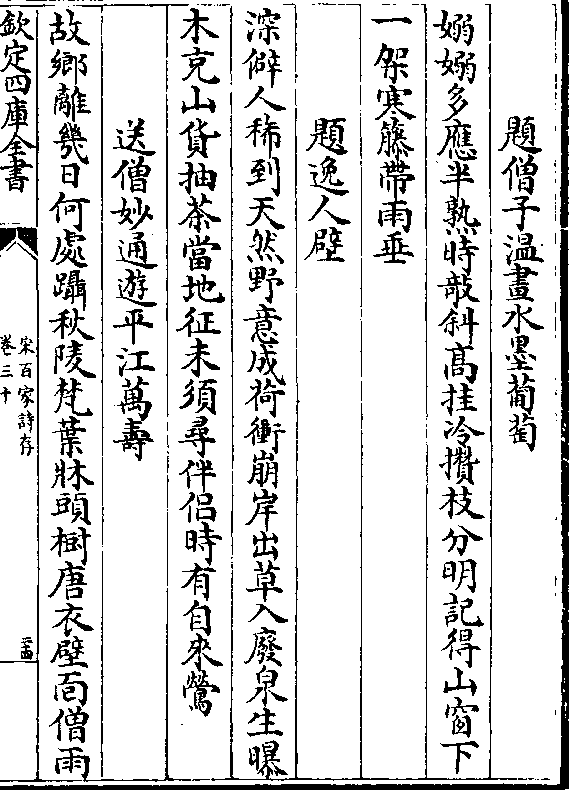 題僧子温畫水墨葡萄
嫋嫋多應半熟時敲斜髙挂冷攢枝分明記得山窗下
一架寒籐帶雨垂
題逸人壁
深僻人稀到天然野意成荷衝崩岸出草入廢泉生曝
木克山貨抽茶當地征未須尋伴侣時有自來鶯
送僧妙通遊平江萬壽
故鄉離幾日何處躡秋陵梵葉牀頭樹唐衣壁面僧雨
欽定四庫全書
宋百家詩存
卷三十